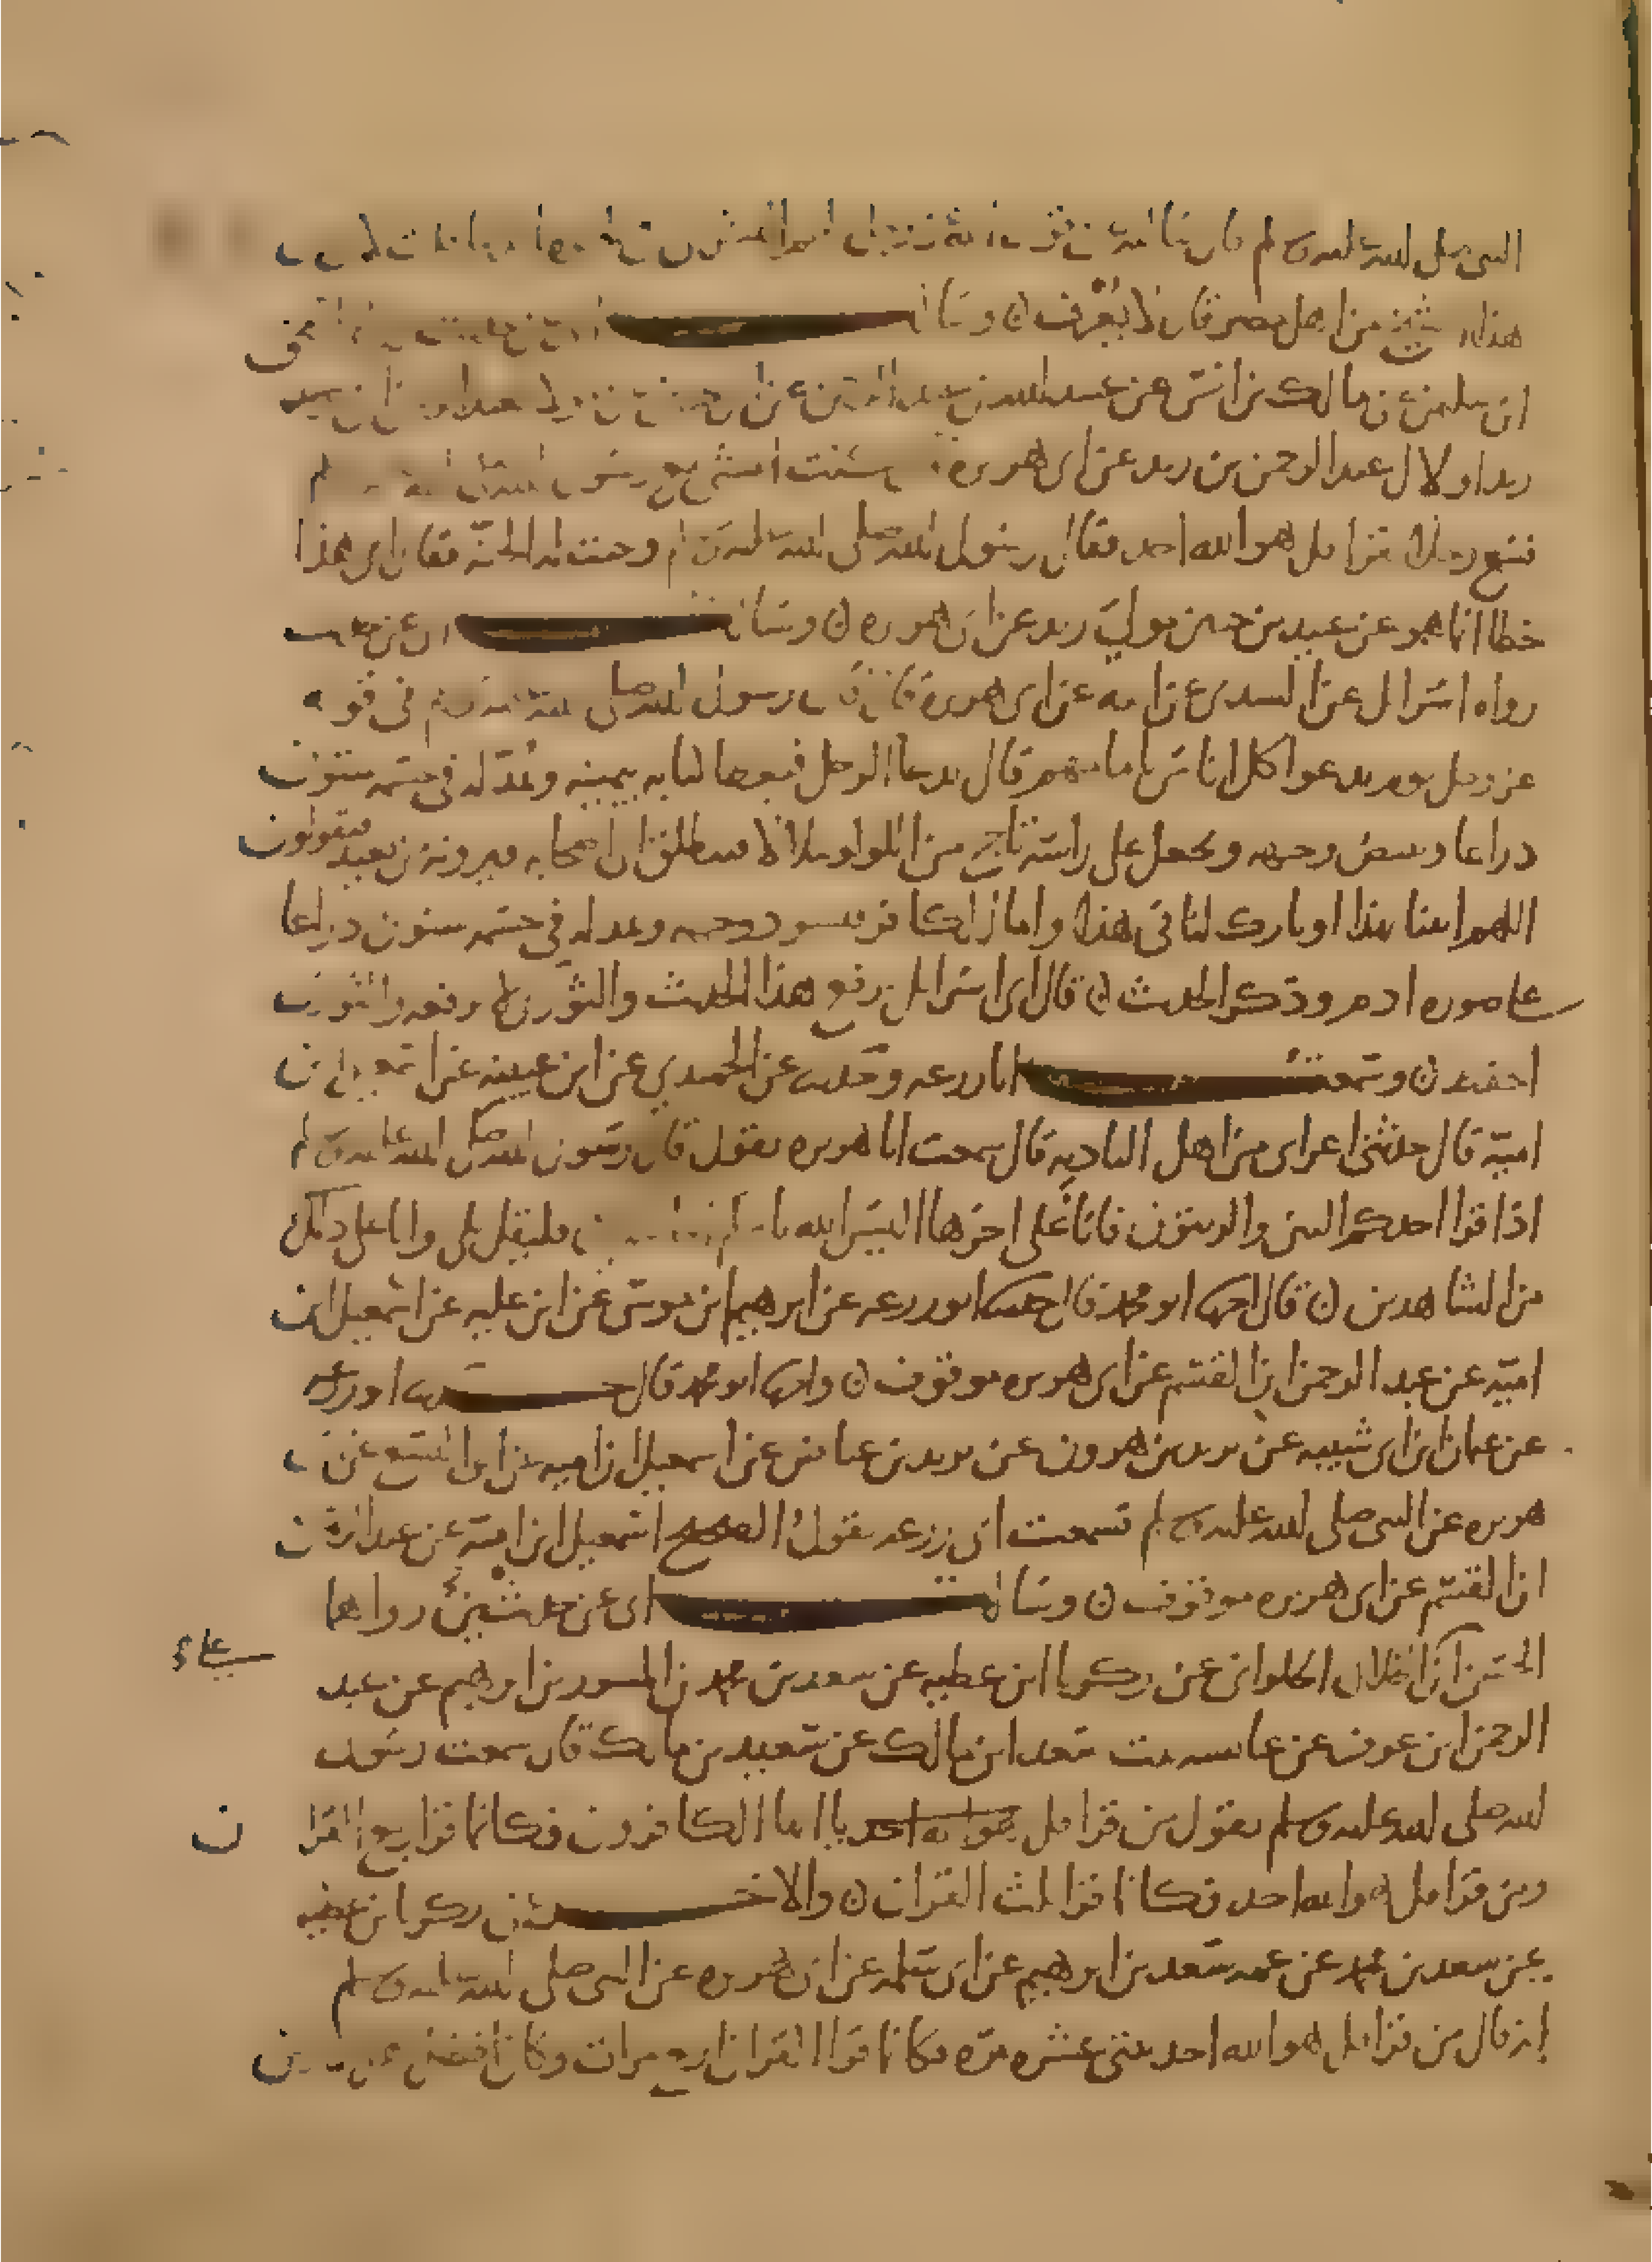 النبي صلى الله عليه وسلم قال
هذا شيخ من اهل مصر قال لا يعرف ن وسالت ابي عن حديث رواه اسحق
ابن سليمن عن مالك بن انس عن عبد الله بن عبد الرحمن عن
زيد او لال عبد الرحمن بن زيد عن ابي هريرة كنت امشي مع رسول الله صلى الله عليه وسلم
فسمع رجلا يقرا قل هو الله احد فقال رسول الله صلى الله عليه وسلم وجبت له الجنة فقال ابي هذا
خطا انما هو عن عبيد بن حنين مولى زيد عن ابي هريرة ن وسالت ابي عن حديث
رواه اسرائل عن السدي عن ابيه عن ابي هريرة قال قال رسول الله صلى الله عليه وسلم في قوله
عز وجل يوم يدعوا كل اناس بامامهم قال يدعا الرجل فيعطا كتابه بيمينه ويمد له في جسمه ستون
دراعا ويبيض وجهه ويجعل على راسه تاج من اللولو يتلالا فينطلق الى اصحابه فيرونه من بعيد فيقولون
اللهم ايتنا بهذا او بارك لنا في هذا واما الكافر فيسود وجهه ويمد له في جسمه ستون دراعا
على صورة ادم وذكر الحديث ن قال ابي اسرائل يرفع هذا الحديث والثوري لم يرفعه والثوري
احفظ ن وسمعت ابا زرعه وحدثنا عن الحميدي عن ابن عيينه عن اسمعيل بن
امية قال حدثني اعرابي من اهل الباديه قال سمعت ابا هريره يقول قال رسول الله صلى الله عليه وسلم
اذا قرا احدكم التين والزيتون فاتا على اخرها اليس الله باحكم الحاكمين فليقل بلى وانا على ذلك
من الشاهدين ن قال اخبرنا ابو محمد قال حدثنا ابو زرعه عن ابرهيم ابن موسى عن ابن عليه عن اسمعيل ابن
امية عن عبد الرحمن ابن القسم عن ابي هريره موقوف ن واخبرنا ابو محمد قال حدثنا ابو زرعه
عن عثمان ابن ابي شيبه عن يزيد بن هرون عن يزيد بن عياض عن اسمعيل ابن اميه عن ابي اليسع عن ابي
هريره عن النبي صلى الله عليه وسلم فسمعت ابي زرعه يقول الصحيح اسمعيل ابن امية عن عبد الرحمن
ابن القسم عن ابي هريره موقوف ن وسالت ابي عن حديثين رواهما
الحسن ابن علي الخلال الحلواني عن زكريا ابن عطيه عن سعد بن محمد بن المسور بن ابرهيم عن عبد
الرحمن ابن عوف عن عائشه بنت سعد ابن مالك عن سعيد بن مالك قال سمعت رسول
الله صلى الله عليه وسلم يقول من قرا قل هو الله احد يا ايها الكافرون فكانما قرا ربع القران
ومن قرا قل هو الله احد فكانما قرا ثلث القران ن والاخر حدثني زكريا ابن عطيه
عن سعد بن محمد عن عمه سعد بن ابرهيم عن ابي سلمه عن ابي هريره عن النبي صلى الله عليه وسلم
انه قال من قرا قل هو الله احد ثنتي عشره مرة فكانما قرا القران اربع مرات وكان افضل